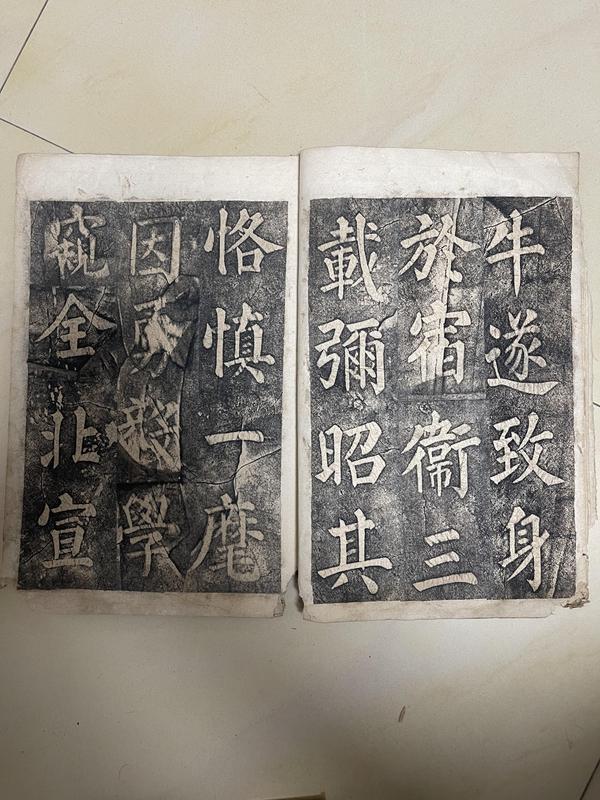 牛遂致身
於宿衛三
載彌昭其
恪慎一麾
因學
窺全北宣